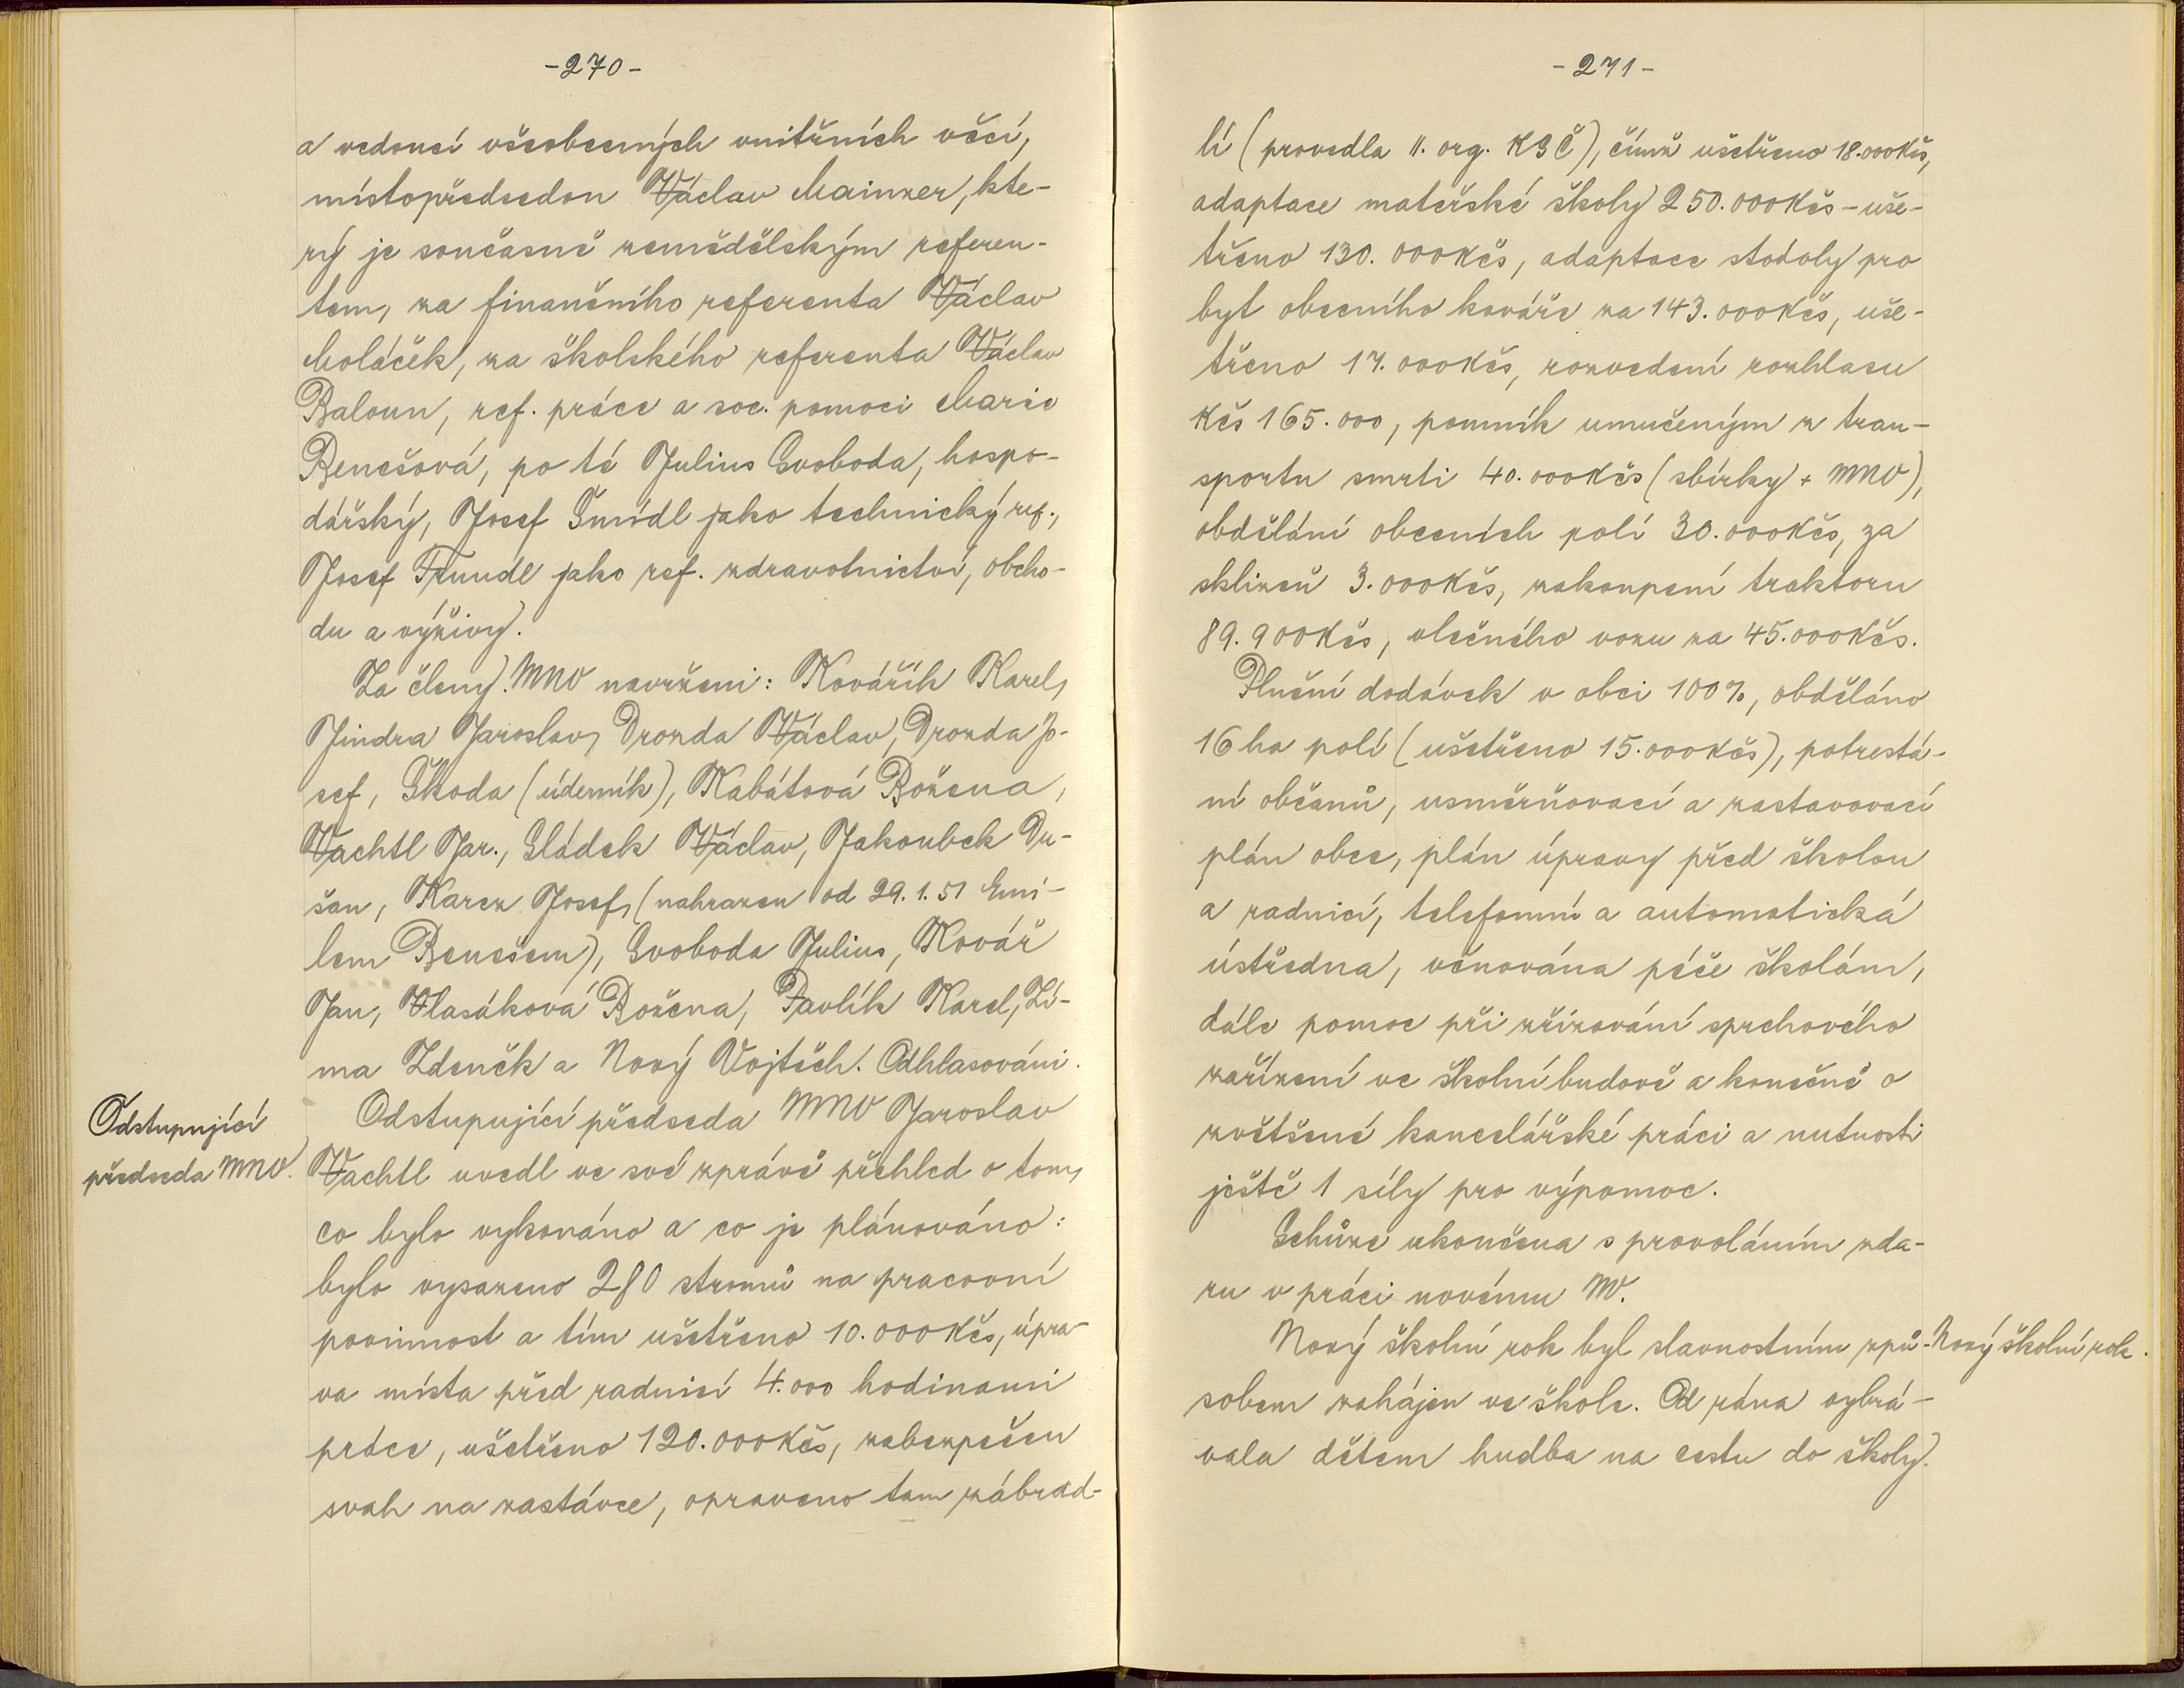 -270-
a vedoucí všeobecných vnitřních věcí,
místopředsedou Václav Mainzer, kte-
rý je současně zemědělským referen-
tem, za finančního referenta Václav
Moláček, za školského referenta Václav
Baloun, ref. práce a soc. pomoci Marie
Benešová, po té Julius Svoboda, hospo-
dářský, Josef Šmídl jako technický ref.,
Josef Trundl jako ref. zdravotnictví, obcho-
du a výživy.
Za členy MNV navrženi: Kovářík Karel,
Jindra Jaroslav, Drozda Václav, Drozda Jo-
sef, Škoda (úderník), Kabátová Božena,
Vachtl Jar., Sládek Václav, Jakoubek Du-
šan, Karez Josef, (nahrazen od 29.1.51 Emi-
lem Benešem), Svoboda Julius, Kovář
Jan, Vlasáková Božena, Pavlík Karel, Zí-
ma Zdeněk a Nový Vojtěch. Odhlasováni.
Odstupující
předseda MNV.
Odstupující předseda MNV Jaroslav
Vachtl uvedl ve své zprávě přehled o tom,
co bylo vykonáno a co je plánováno:
bylo vysazeno 280 stromů na pracovní
povinnost a tím ušetřeno 10.000 Kčs, úpra-
va místa před radnicí 4.000 hodinami
práce, ušetřeno 120.000 Kčs, zabezpečen
svah na zastávce, opraveno tam zábrad-
-271-
lí (provedla II. org. KSČ), čímž ušetřeno 18.000 Kčs,
adaptace mateřské školy 250.000 Kčs - uše-
třeno 130.000 Kčs, adaptace stodoly pro
byt obecního kováře za 143.000 Kčs, uše-
třeno 17.000 Kčs, rozvedení rozhlasu
Kčs 165.000, pomník umučeným z tran-
sportu smrti 40.000 Kčs (sbírky + MNV),
obdělání obecních polí 30.000 Kčs, za
sklizeň 3.000 Kčs, zakoupení traktoru
89.900 Kčs, vlečného vozu za 45.000 Kčs.
Plnění dodávek v obci 100%, obděláno
16 ha polí (ušetřeno 15.000 Kčs), potrestá-
ní občanů, usměrňovací a zastavovací
plán obce, plán úpravy před školou
a radnicí, telefonní a automatická
ústředna, věnována péče školám,
dále pomoc při zřizování sprchového
zařízení ve školní budově a konečně o
zvětšené kancelářské práci a nutnosti
ještě 1 síly pro výpomoc.
Schůze ukončena s provoláním zda-
ru v práci novému NV.
Nový školní rok byl slavnostním způ-
Nový školní rok.
sobem zahájen ve škole. Od rána vyhrá-
vala dětem hudba na cestu do školy.